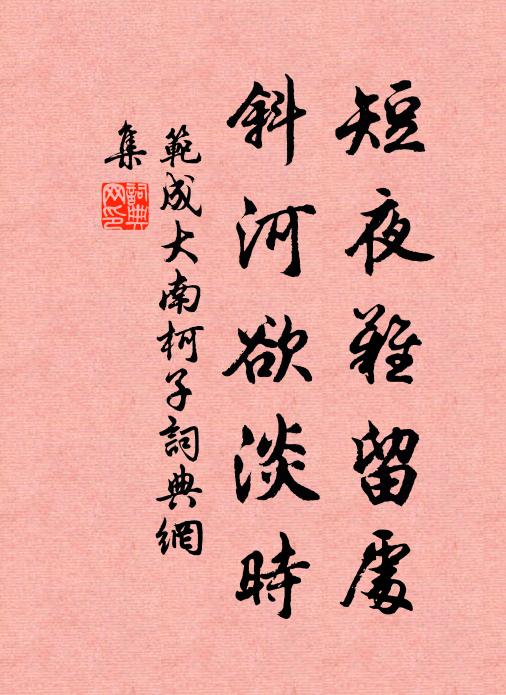 短夜難留處
斜河欲淡時
範成大南柯子詞典網
集
詞典
网印